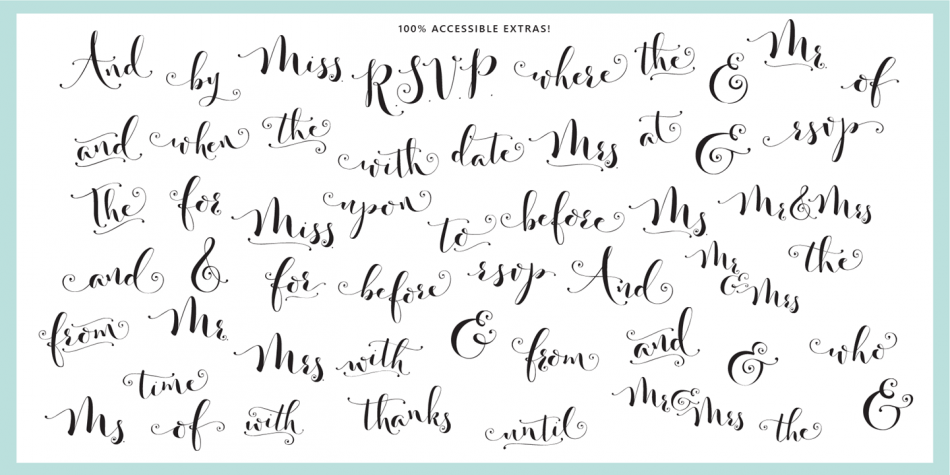 100% ACCESSIBLE EXTRAS!
And by Miss R.S.V.P. where the & Mr. of
and when the with date Mrs at & rsvp
The for Miss upon to before Ms Mr&Mrs
and & for before rsvp And Mr & Mrs the
from Mr. Mrs with & from and & who
time
Ms of with thanks until Mr&Mrs the &